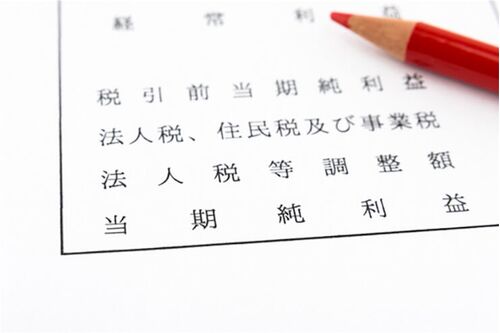 経常利益
税引前当期純利益
法人税、住民税及び事業税
法人税等調整額
当期純利益